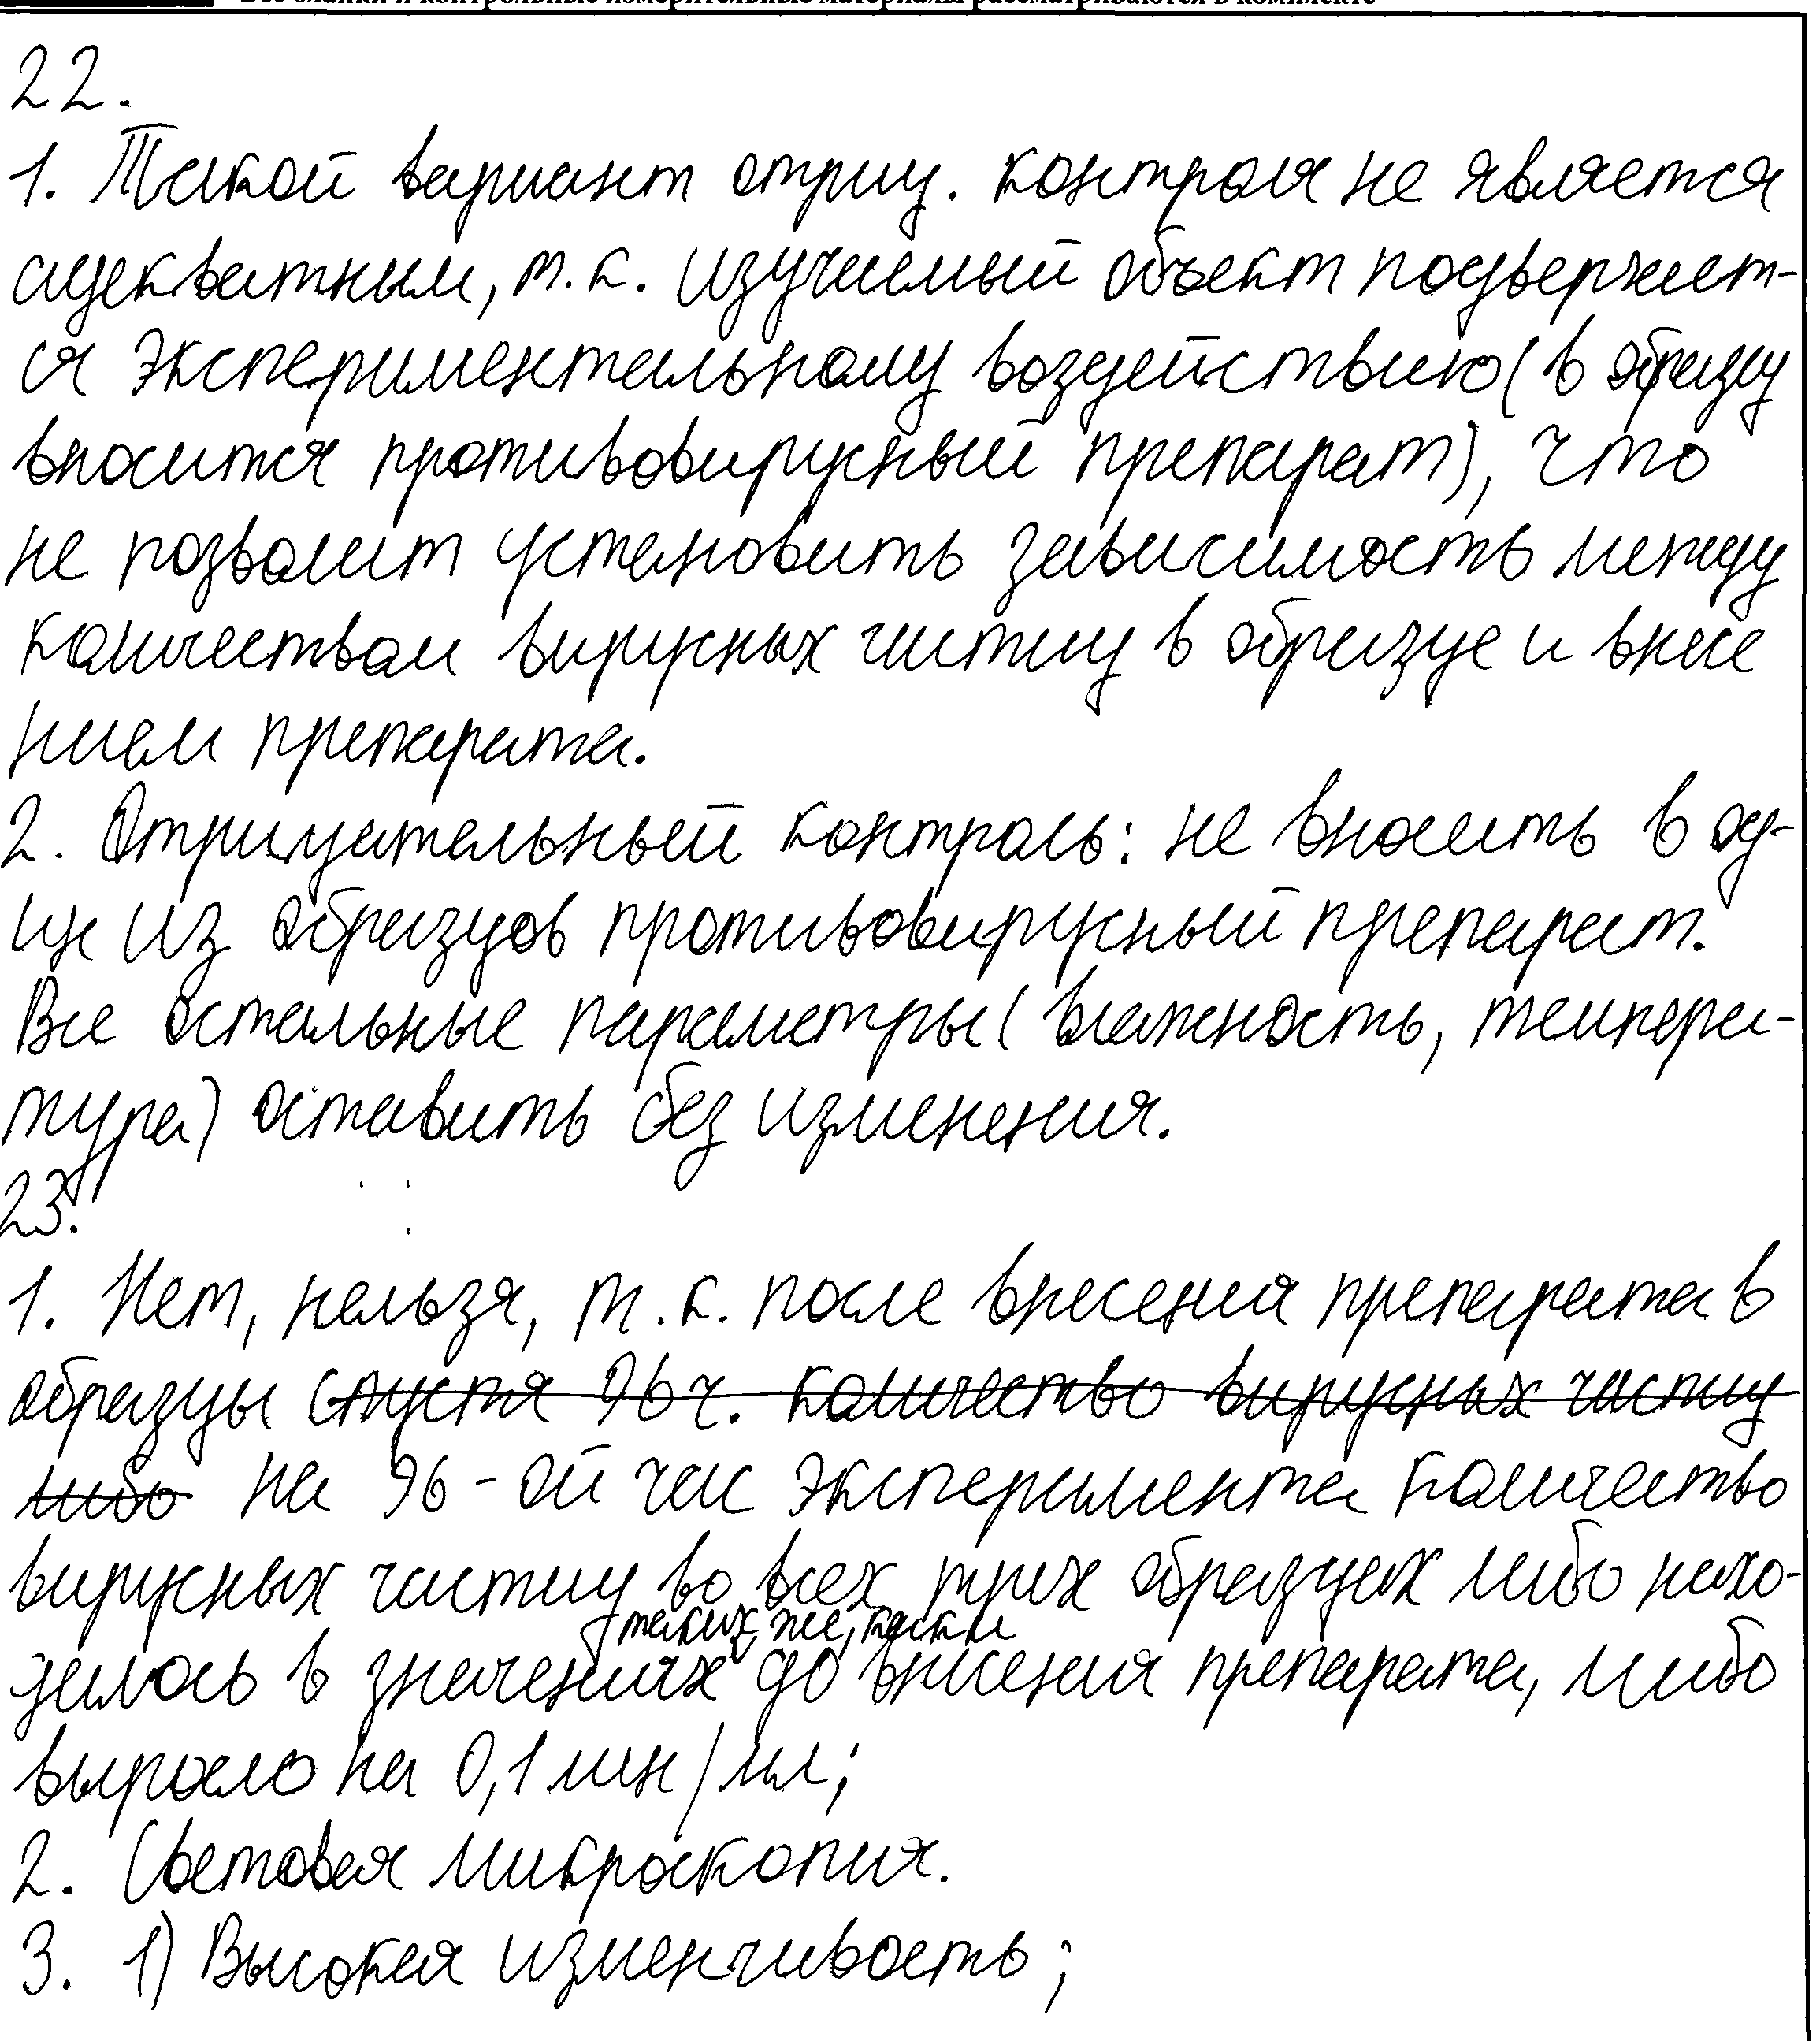 Все бланки и контрольные измерительные материалы рассматриваются в комплекте
22.
1. Такой вариант отриц. контроля не является
адекватным, т.к. изучаемый объект подвержает-
ся экспериментальному воздействию (в образец
вносится противовирусный препарат), что
не позволит установить зависимость между
количеством вирусных частиц в образце и внесе
нием препарата.
2. Отрицательный контроль: не вносить в од-
ин из образцов противовирусный препарат.
Все остальные параметры (влажность, темпера-
тура) оставить без изменения.
23.
1. Нет, нельзя, т.к. после внесения препарата в
образцы спустя 96 ч. количество вирусных частиц
либо на 96-ой час эксперимента количество
вирусных частиц во всех трих образцах либо нахо-
дилось в значениях таких же, как и до внесения препарата, либо
выросло на 0,1 млн/мл;
2. Световая микроскопия.
3. 1) Высокая изменчивость;